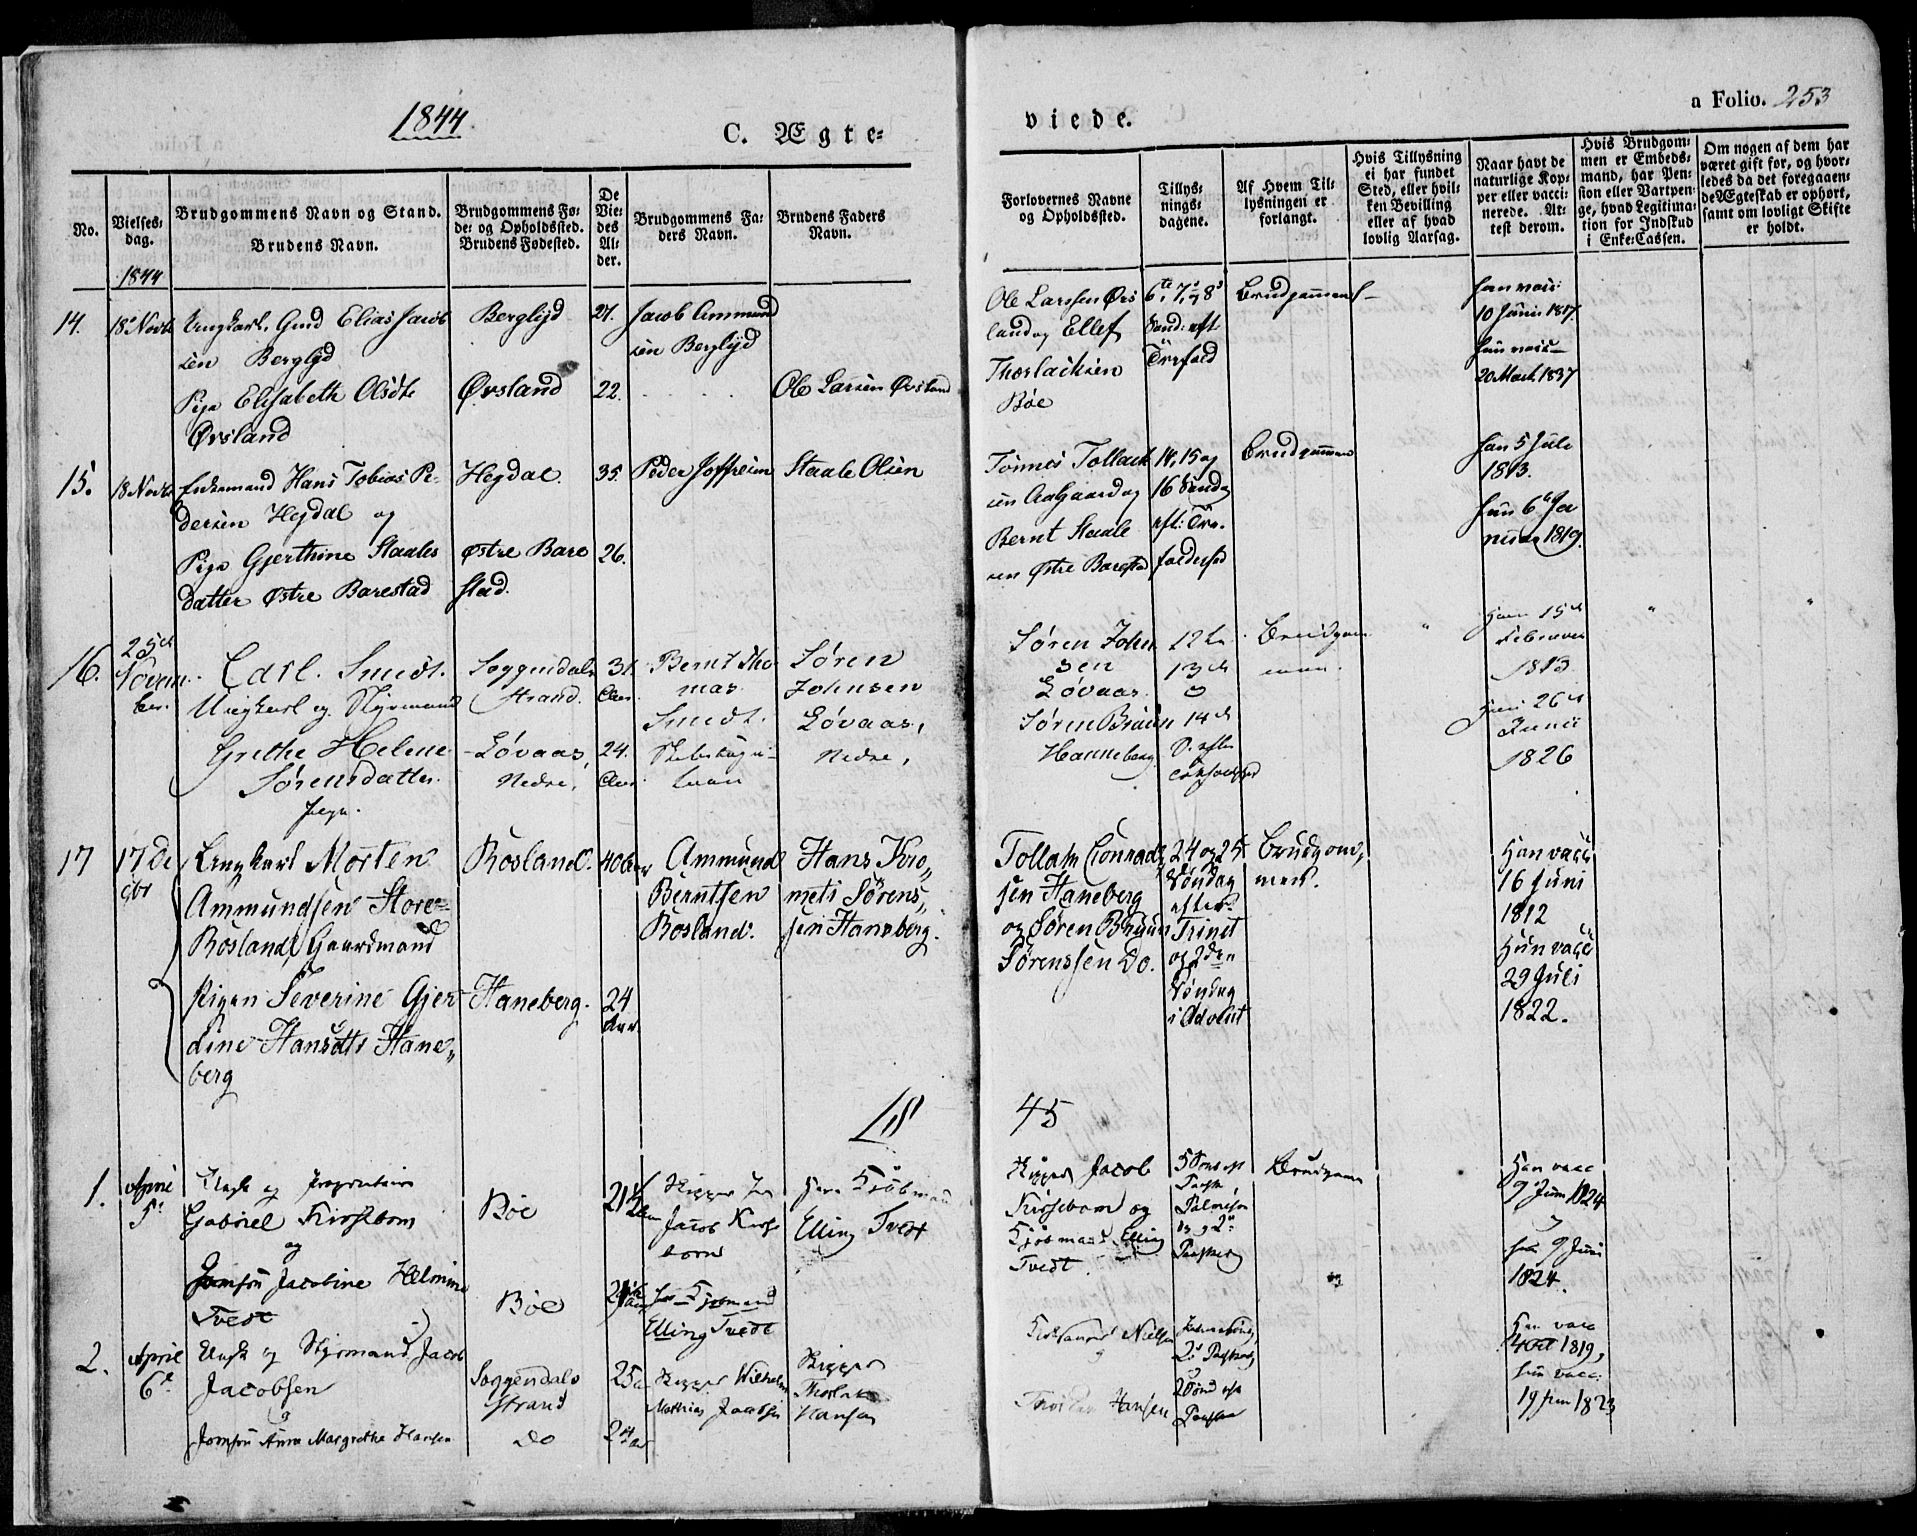 1844
C. Ægte=
viede.
a Folio. 253
No.
Vielses=
dag.
1844
Brudgommens Navn og Stand.
Brudens Navn.
Brudgommens Fø=
de= og Opholdssted.
Brudens Fødested.
De
Vie=
des
Al=
der.
Brudgommens Fa=
ders Navn.
Brudens Faders
Navn.
Forlovernes Navne
og Opholdssted.
Tillys=
nings=
dagene.
Af Hvem Til=
lysningen er
forlangt.
Hvis Tillysning
ei har fundet
Sted, eller hvil=
ken Bevilling
eller af hvad
lovlig Aarsag.
Naar havt de
naturlige Kop=
per eller vacci=
nerede. At=
test derom.
Hvis Brudgom=
men er Embeds=
mand, har Pen=
sion eller Vartpen=
ge, hvad Legitima=
tion for Indskud
i Enke=Cassen.
Om nogen af dem har
været gift før, og hvor=
ledes da det foregaaen=
de Ægteskab er ophørt,
samt om lovligt Skifte
er holdt.
14.
18 Novb
Ungkarl. Gmd Elias Jacob
sen Berglyd
Pige Elisabeth Olsdt
Ørsland
Berglyd
Ørsland
27.
22.
Jacob Ammund
sen Berglyd
Ole Larsen Ørsland
Ole Larssen Ørs
land og Ellef
Thorlacksen
Bøe
6te, 7, og 8
Sand: eft
Trefold
Brudgommen
han vacc:
10 Juni 1817
hun vacc
20 Mart. 1837
15.
18 Novb
Enkemand Hans Tobias Pe
dersen Hegdal og
Pige Gjerthine Staales
datter Østre Barestad
Hegdal
Østre Bare
stad.
35.
26.
Peder Joffreien
Staale Olsen
Tønnes Tollack
sen Aagaard og
Bernt Staale
sen Østre Barestad
14, 15 og
16 Sønda
eft: Tre
foldehed
Brudgommen
han 5 Jule
1813.
hun 6 Ja
nuar 1819.
16.
25de
Novem
ber.
Carl Smedt.
Ungkarl og Styrmand
Grethe Helene
Sørensdatter.
Pige.
Soggendals
Strand.
Løvaas,
Nedre,
31.
Aar.
24.
Aar.
Bernt Tho
mas
Smedt.
Søren
Johnsen
Løvaas,
Nedre,
Søren John
sen
Løvaas
Søren Bruun
Hanneberg
12te
13de
14de
S. efter
Brudgom
men.
Han 15de
Februar
1813
Hun 26de
Junii
1826
17
17 De
cbr
Ungkarl Morten
Ammundsen Store=
Rosland, Gaardmand
Pigen Severine Gjer
dine Hansdtr Hane„
berg
Rosland.
Haneberg.
40 Aar
24
Aar
Ammund
Berntsen
Rosland.
Hans Kro„
meti Sørens„
sen Haneberg.
Tollak Conrad„
sen Haneberg
og Søren Bruun
Sørenssen Do.
24 og 25
Søndag
efter
Trinit
og 2den
Søndag
i Advent
Brudgom„
men.
Han vacc
16 Juni
1812
Hun vacc
29 Juli
1822.
18
45
1.
April
5.
Ungk og Proprietair
Gabriel Kirsebom
og
Jomfru Jacobine Helmine
Tvedt
Bøe
Bøe
21½
Jacob Kirse
bom
Elling Tvedt
Elling Tvedt
Skipper Jacob
Kirsebom og
Kjøbmand Elling
Tvedt.
5 Søn eft
Paske
Palmesøn
dg og 2
Paskedg
Brudgom
Han vacc
9 Juni 1824
og
hun 9 Juni
1824.
2.
April
6.
Ungk og Styrmand Jacob
Jacobsen
og
Jomfru Anne Margrethe Hansen
Soggendals
strand
do
25
24 aar
Skipper Wilhelm
Mathias Jacobsen
Skipper
Thorlak
Hansen
Nielsen
Hansen
2 Paskedg
2 Sønd eft
Paaske
Han vacc
4 oct 1819,
hun vacc:
19 Jun 1823